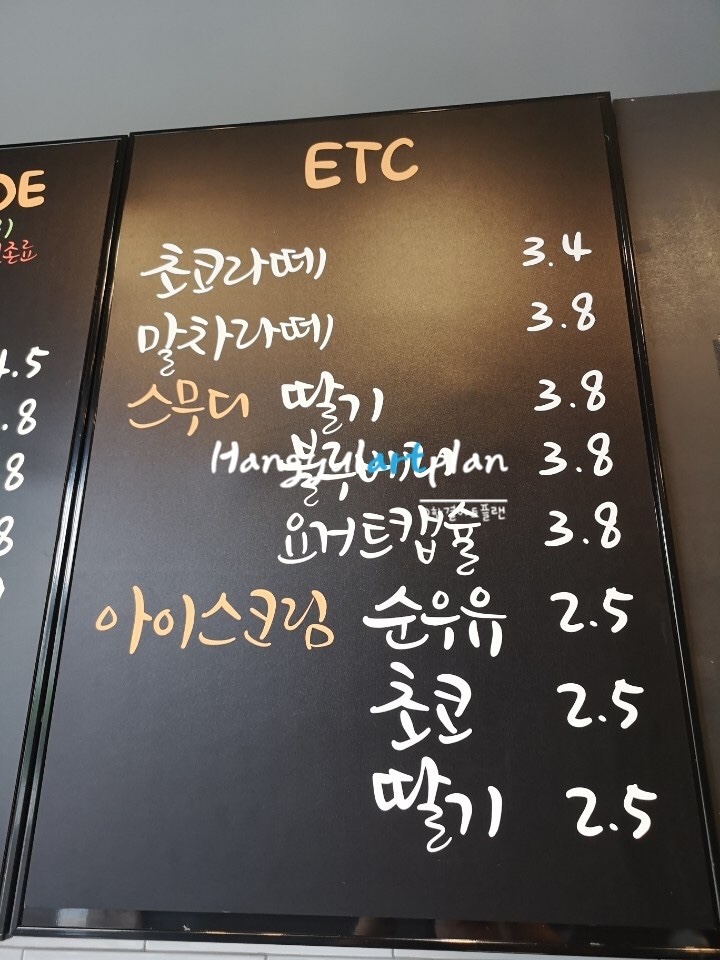 ETC
초코라떼 3.4
말차라떼 3.8
스무디 딸기 3.8
블루베리 3.8
Hangyulartplan
요거트캡슐 3.8
아이스크림 순우유 2.5
초코 2.5
딸기 2.5
DE
4.5
.8
8
8